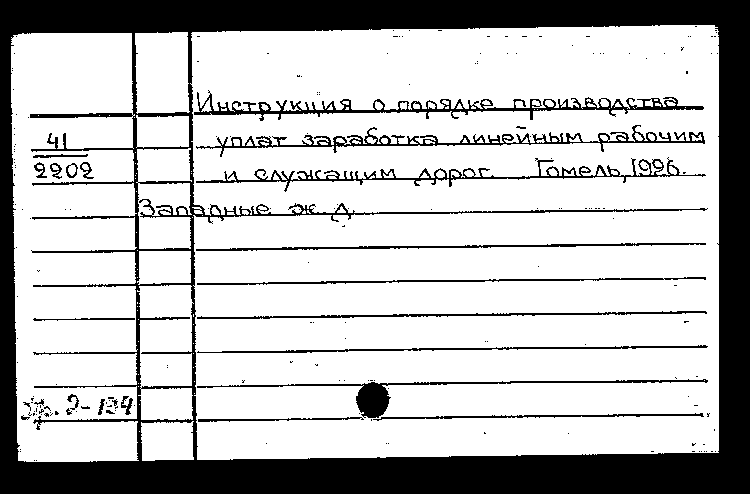 Инструкция о порядке производства
41
уплат заработка линейным рабочим
2202
и служащим дорог. Гомель, 1926.
Западные ж. д.
2-124